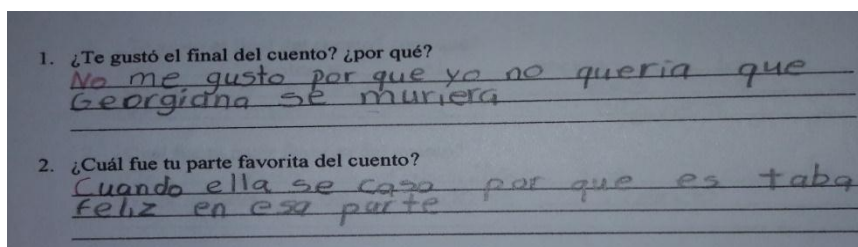 1. ¿Te gustó el final del cuento? ¿por qué?
No me gusto por que yo no queria que
Georgiana se muriera
2. ¿Cuál fue tu parte favorita del cuento?
Cuando ella se caso por que es taba
feliz en esa parte